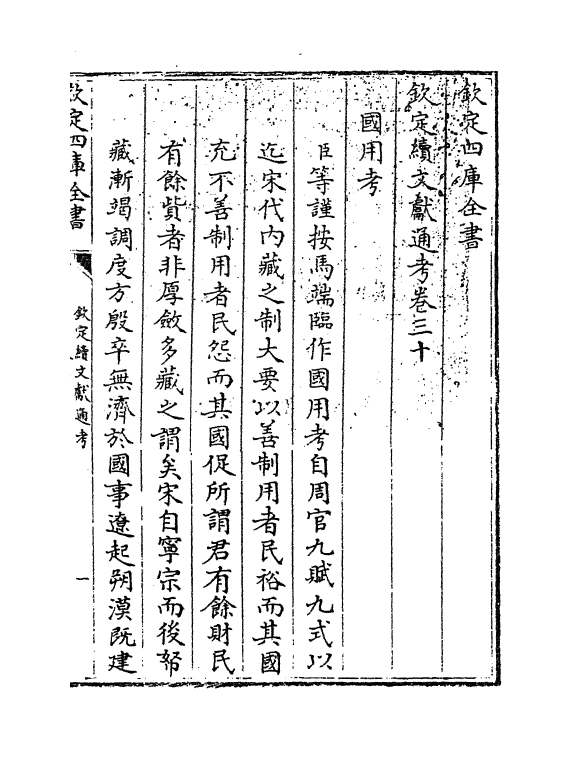 欽定四庫全書
欽定續文獻通考卷三十
國用考
臣等謹按馬端臨作國用考自周官九賦九式以
迄宋代内藏之制大要以善制用者民裕而其國
充不善制用者民怨而其國促所謂君有餘財民
有餘貲者非厚斂多藏之謂矣宋自寧宗而後帑
藏漸竭調度方殷卒無濟於國事遼起朔漠既建
欽定四庫全書
欽定續文獻通考
一